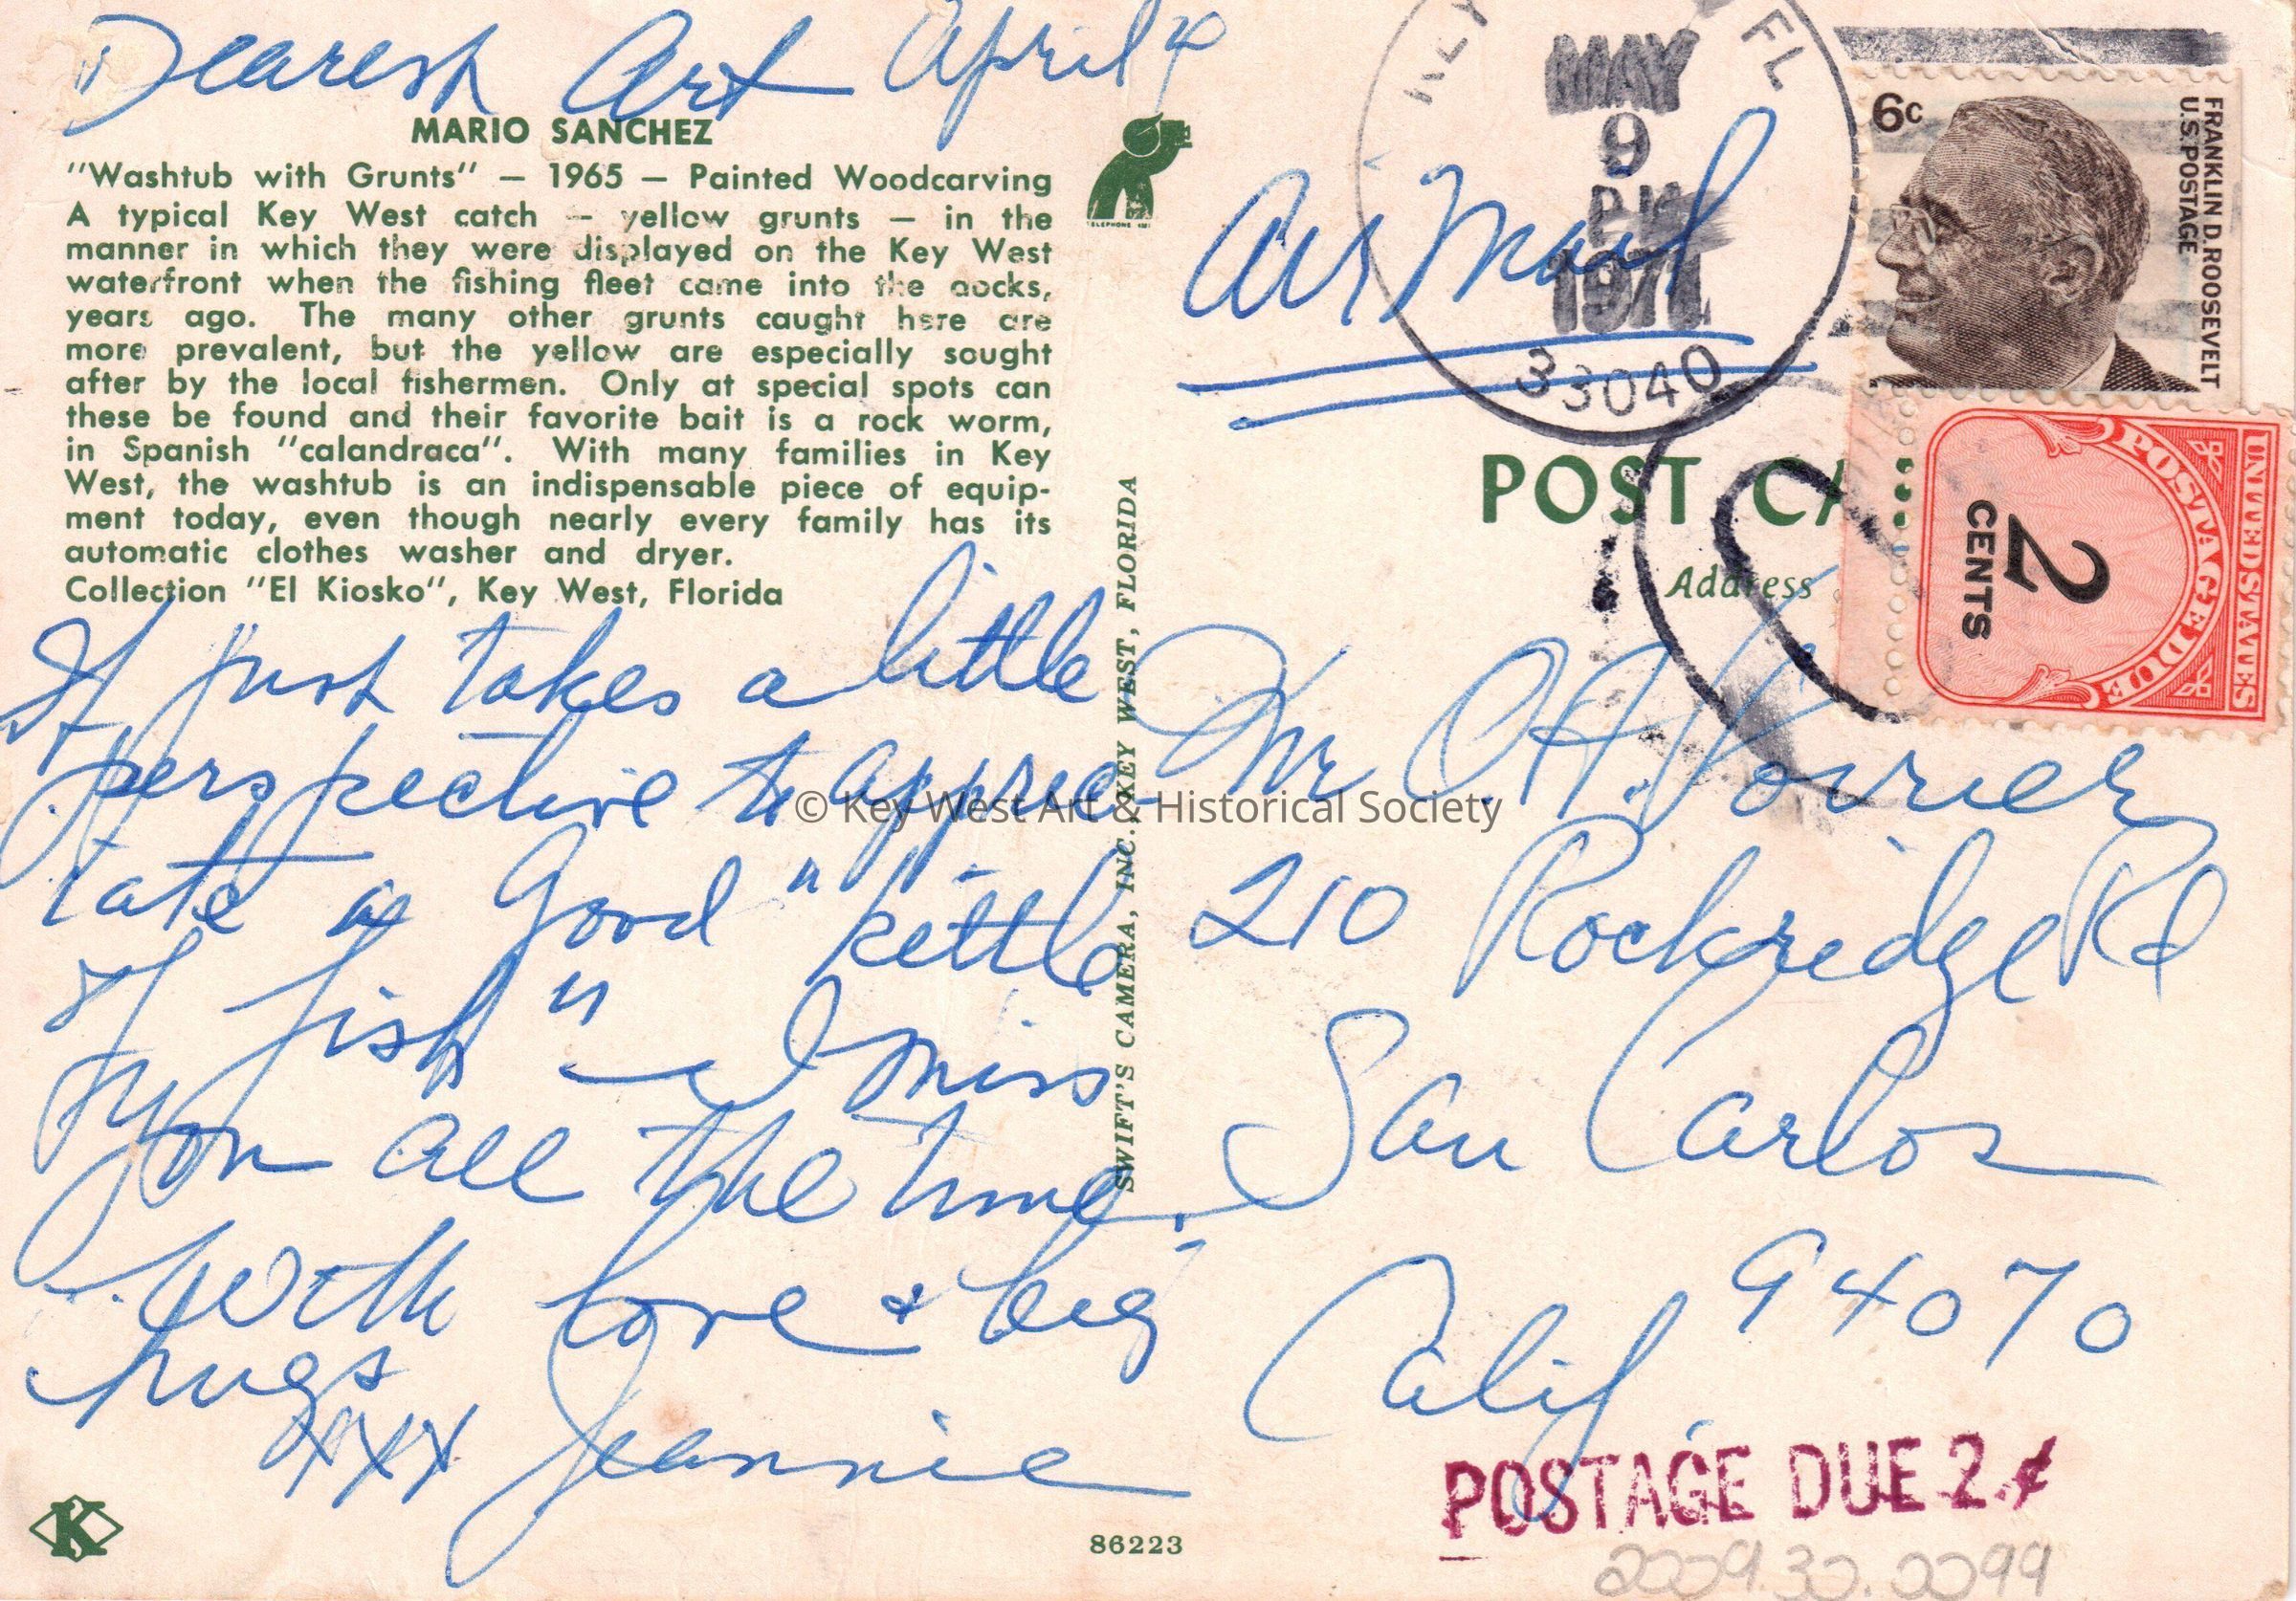 Dearest Art April
MARIO SANCHEZ
"Washtub with Grunts" — 1965 — Painted Woodcarving
A typical Key West catch — yellow grunts — in the
manner in which they were displayed on the Key West
waterfront when the fishing fleet came into the docks,
years ago. The many other grunts caught here are
more prevalent, but the yellow are especially sought
after by the local fishermen. Only at special spots can
these be found and their favorite bait is a rock worm,
in Spanish "calandraca". With many families in Key
West, the washtub is an indispensable piece of equip-
ment today, even though nearly every family has its
automatic clothes washer and dryer.
Collection "El Kiosko", Key West, Florida
It just takes a little
perspective to apprec-
iate a good "kettle
of fish" – I miss
you all the time.
With love & big
hugs
XXX Jeannie
K
86223
SWIFT'S CAMERA, INC., KEY WEST, FLORIDA
KEY FL
MAY
9
PM
1971
33040
Air Mail
6c
FRANKLIN D. ROOSEVELT
U.S. POSTAGE
UNITED STATES
POSTAGE DUE
2
CENTS
POST CA
Address
Mr O.A.
210 Rockridge Rd
San Carlos
Calif. 94070
POSTAGE DUE 2 ¢
2009.30.0099
© Key West Art & Historical Society